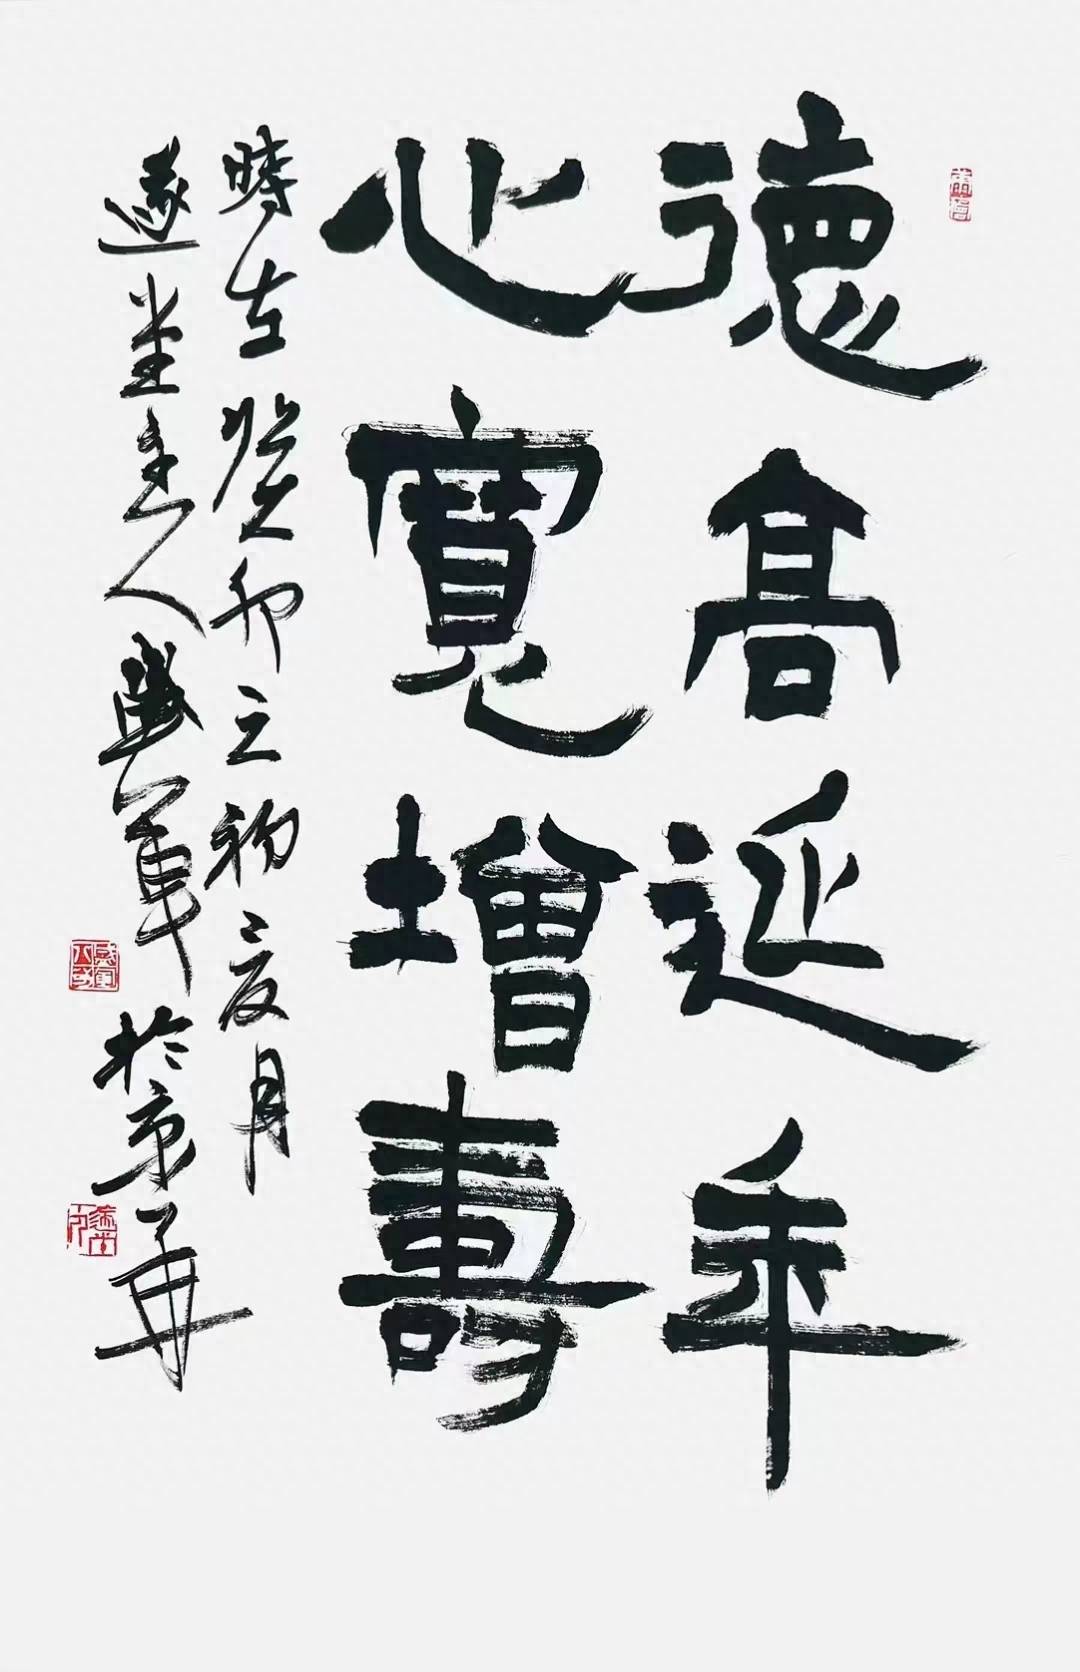 德高延年
心寬增壽
時在癸卯之初夏月
遂堂主人盛軍於京華